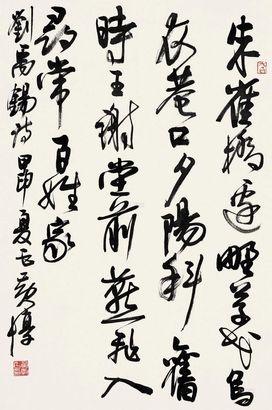 朱雀橋邊野草花烏
衣巷口夕陽斜舊
時王謝堂前燕飛入
尋常百姓家
劉禹錫詩甲申夏黃惇